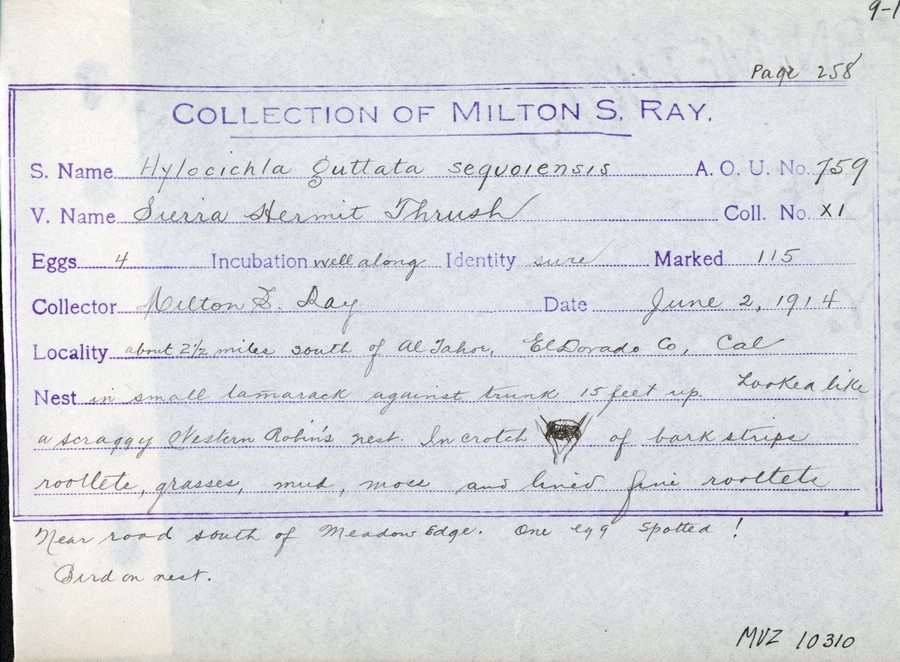 9-1
Page 258
COLLECTION OF MILTON S. RAY.
S. Name Hylocichla guttata sequoiensis A. O. U. No. 759
V. Name Sierra Hermit Thrush Coll. No. XI
Eggs 4 Incubation well along Identity sure Marked 115
Collector Milton S. Ray Date June 2, 1914
Locality about 2½ miles south of Al Tahoe, El Dorado Co, Cal
Nest in small tamarack against trunk 15 feet up. Looked like
a scraggy Western Robin's nest. In crotch of bark strips
rootlets, grasses, mud, moss and lined fine rootlets
Near road south of Meadow Edge. One egg spotted!
Bird on nest.
MVZ 10310